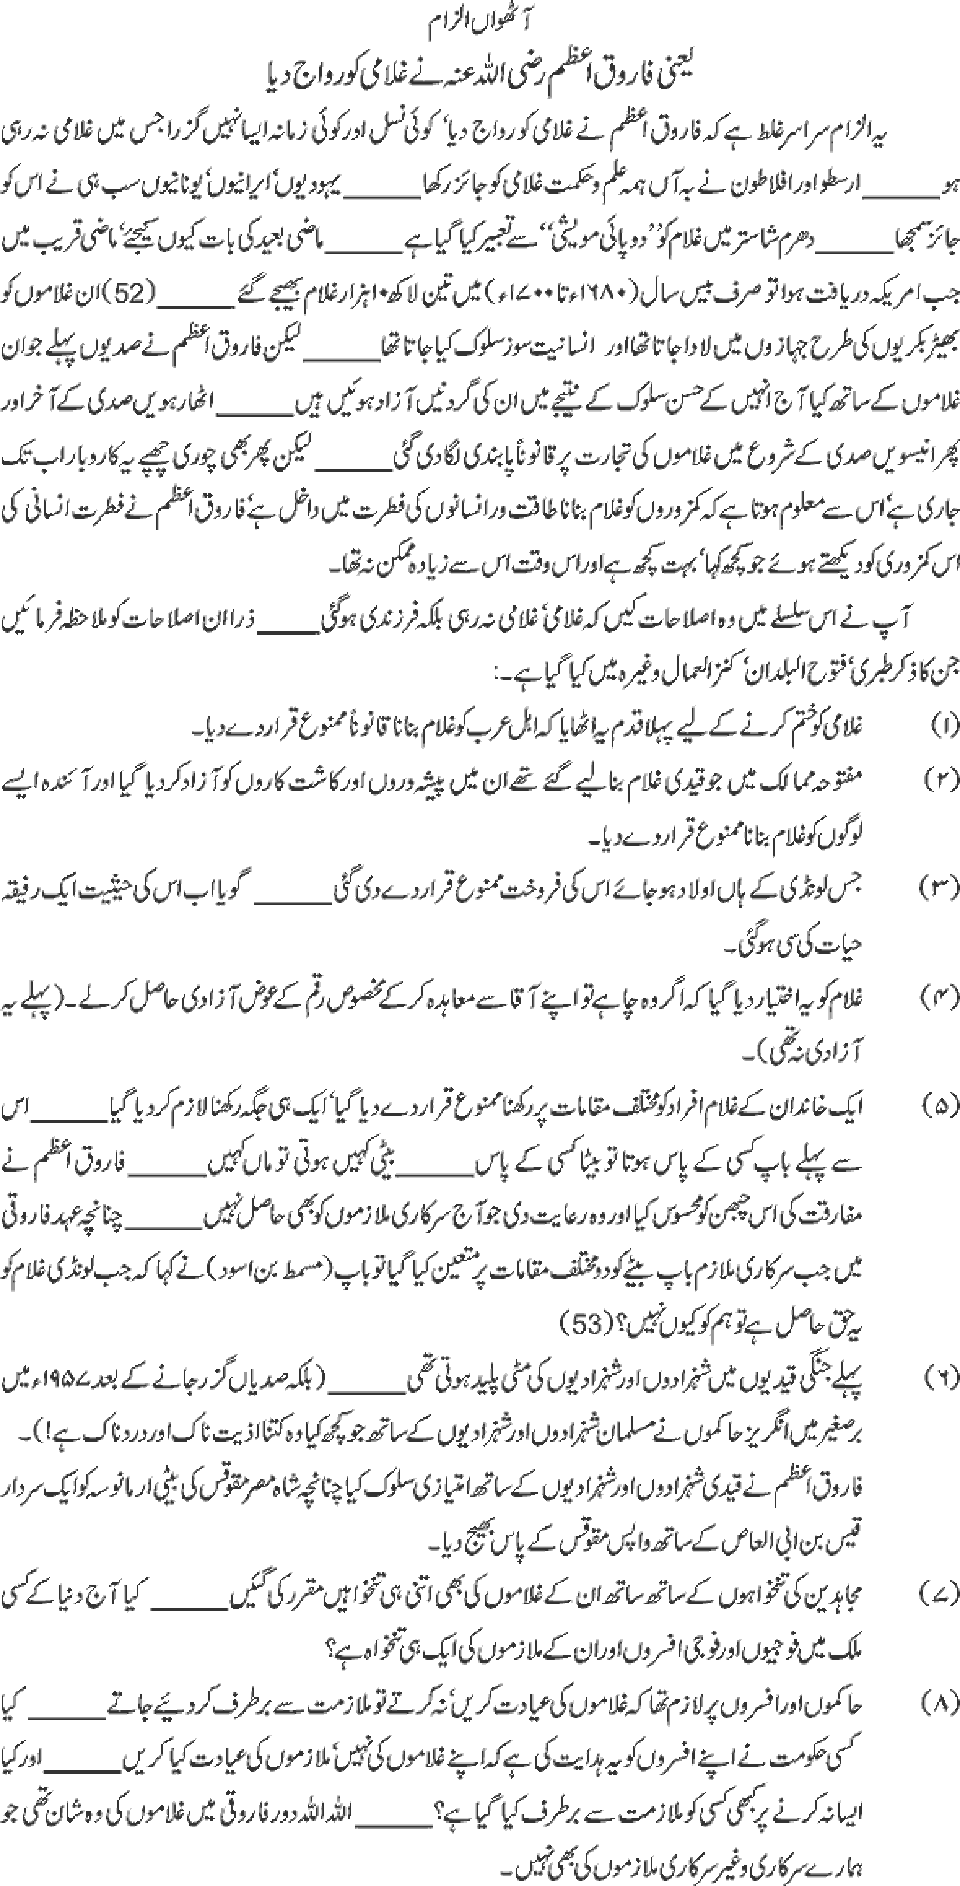 آٹھواں الزام
یعنی فاروق اعظم رضی اللہ عنہ نے غلامی کو رواج دیا
یہ الزام سراسر غلط ہے کہ فاروق اعظم نے غلامی کو رواج دیا، کوئی نسل اور کوئی زمانہ ایسا نہیں گزرا جس میں غلامی نہ رہی
ہو ______ ارسطو اور افلاطون نے بہ آں ہمہ علم و حکمت غلامی کو جائز رکھا ______ یہودیوں، ایرانیوں، یونانیوں سب ہی نے اس کو
جائز سمجھا ______ دھرم شاستر میں غلام کو ”دو پائی مویشی“ سے تعبیر کیا گیا ہے ______ ماضی بعید کی بات کیوں کیجئے، ماضی قریب میں
جب امریکہ دریافت ہوا تو صرف بیس سال (۱۶۸۰ء تا ۱۷۰۰ء) میں تین لاکھ ۱۰ ہزار غلام بھیجے گئے ______ (52) ان غلاموں کو
بھیڑ بکریوں کی طرح جہازوں میں لادا جاتا تھا اور انسانیت سوز سلوک کیا جاتا تھا ______ لیکن فاروق اعظم نے صدیوں پہلے جو ان
غلاموں کے ساتھ کیا آج انہیں کے حسن سلوک کے نتیجے میں ان کی گردنیں آزاد ہوئیں ہیں ______ اٹھارہویں صدی کے آخر اور
پھر انیسویں صدی کے شروع میں غلاموں کی تجارت پر قانوناً پابندی لگا دی گئی ______ لیکن پھر بھی چوری چھپے یہ کاروبار اب تک
جاری ہے، اس سے معلوم ہوتا ہے کہ کمزوروں کو غلام بنانا طاقت ور انسانوں کی فطرت میں داخل ہے، فاروق اعظم نے فطرت انسانی کی
اس کمزوری کو دیکھتے ہوئے جو کچھ کہا، بہت کچھ ہے اور اس وقت اس سے زیادہ ممکن نہ تھا۔
آپ نے اس سلسلے میں وہ اصلاحات کیں کہ غلامی، غلامی نہ رہی بلکہ فرزندی ہوگئی ______ ذرا ان اصلاحات کو ملاحظہ فرمائیں
جن کا ذکر طبری، فتوح البلدان، کنز العمال وغیرہ میں کیا گیا ہے۔:
(۱) غلامی کو ختم کرنے کے لیے پہلا قدم یہ اٹھایا کہ اہل عرب کو غلام بنانا قانوناً ممنوع قرار دے دیا۔
(۲) مفتوحہ ممالک میں جو قیدی غلام بنا لیے گئے تھے ان میں پیشہ وروں اور کاشت کاروں کو آزاد کر دیا گیا اور آئندہ ایسے
لوگوں کو غلام بنانا ممنوع قرار دے دیا۔
(۳) جس لونڈی کے ہاں اولاد ہو جائے اس کی فروخت ممنوع قرار دے دی گئی ______ گویا اب اس کی حیثیت ایک رفیقہ
حیات کی سی ہوگئی۔
(۴) غلام کو یہ اختیار دیا گیا کہ اگر وہ چاہے تو اپنے آقا سے معاہدہ کر کے مخصوص رقم کے عوض آزادی حاصل کر لے۔ (پہلے یہ
آزادی نہ تھی)۔
(۵) ایک خاندان کے غلام افراد کو مختلف مقامات پر رکھنا ممنوع قرار دے دیا گیا، ایک ہی جگہ رکھنا لازم کر دیا گیا ______ اس
سے پہلے باپ کسی کے پاس ہوتا تو بیٹا کسی کے پاس ______ بیٹی کہیں ہوتی تو ماں کہیں ______ فاروق اعظم نے
مفارقت کی اس چبھن کو محسوس کیا اور وہ رعایت دی جو آج سرکاری ملازموں کو بھی حاصل نہیں ______ چنانچہ عہد فاروقی
میں جب سرکاری ملازم باپ بیٹے کو دو مختلف مقامات پر متعین کیا گیا تو باپ (مسمط بن اسود) نے کہا کہ جب لونڈی غلام کو
یہ حق حاصل ہے تو ہم کو کیوں نہیں؟ (53)
(۶) پہلے جنگی قیدیوں میں شہزادوں اور شہزادیوں کی مٹی پلید ہوتی تھی ______ (بلکہ صدیاں گزر جانے کے بعد ۱۹۵۷ء میں
برصغیر میں انگریز حاکموں نے مسلمان شہزادوں اور شہزادیوں کے ساتھ جو کچھ کیا وہ کتنا اذیت ناک اور دردناک ہے!)۔
فاروق اعظم نے قیدی شہزادوں اور شہزادیوں کے ساتھ امتیازی سلوک کیا چنانچہ شاہ مصر مقوقس کی بیٹی ارمانوسہ کو ایک سردار
قیس بن ابی العاص کے ساتھ واپس مقوقس کے پاس بھیج دیا۔
(۷) مجاہدین کی تنخواہوں کے ساتھ ساتھ ان کے غلاموں کی بھی اتنی ہی تنخواہیں مقرر کی گئیں ______ کیا آج دنیا کے کسی
ملک میں فوجیوں اور فوجی افسروں اور ان کے ملازموں کی ایک ہی تنخواہ ہے؟
(۸) حاکموں اور افسروں پر لازم تھا کہ غلاموں کی عیادت کریں، نہ کرتے تو ملازمت سے برطرف کر دیئے جاتے ______ کیا
کسی حکومت نے اپنے افسروں کو یہ ہدایت کی ہے کہ اپنے غلاموں کی نہیں، ملازموں کی عیادت کیا کریں ______ اور کیا
ایسا نہ کرنے پر کبھی کسی کو ملازمت سے برطرف کیا گیا ہے؟ ______ اللہ اللہ دور فاروقی میں غلاموں کی وہ شان تھی جو
ہمارے سرکاری و غیر سرکاری ملازموں کی بھی نہیں۔